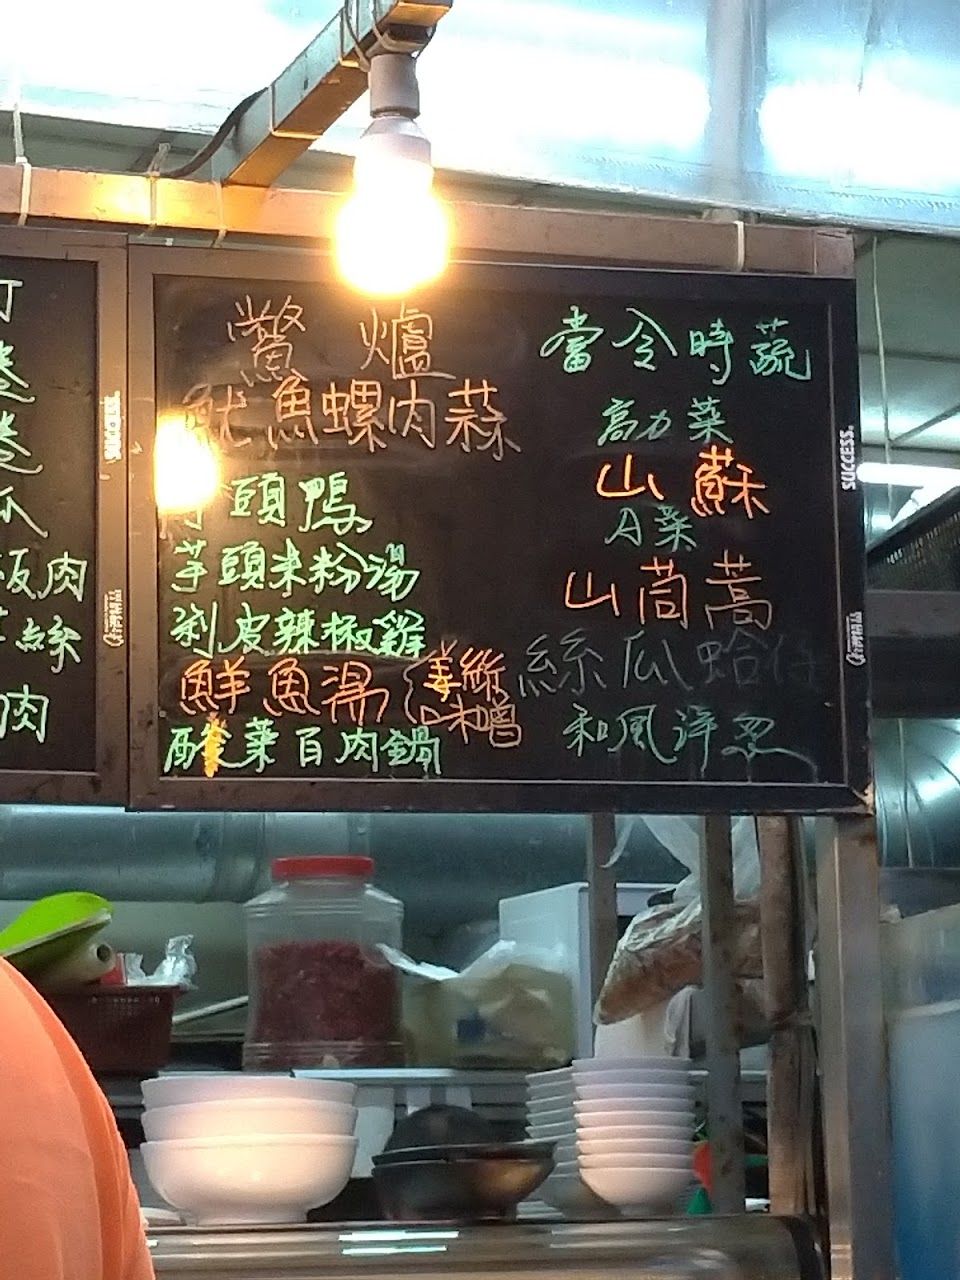 卷
卷
瓜
板肉
絲
肉
SUCCESS
爐
魷魚螺肉蒜
芋頭鴨
芋頭米粉湯
剝皮辣椒雞
鮮魚湯(姜絲
味噌
酸菜百肉鍋
當令時蔬
高力菜
山蘇
A菜
山茼蒿
絲瓜蛤仔
和風洋忩
SUCCESS